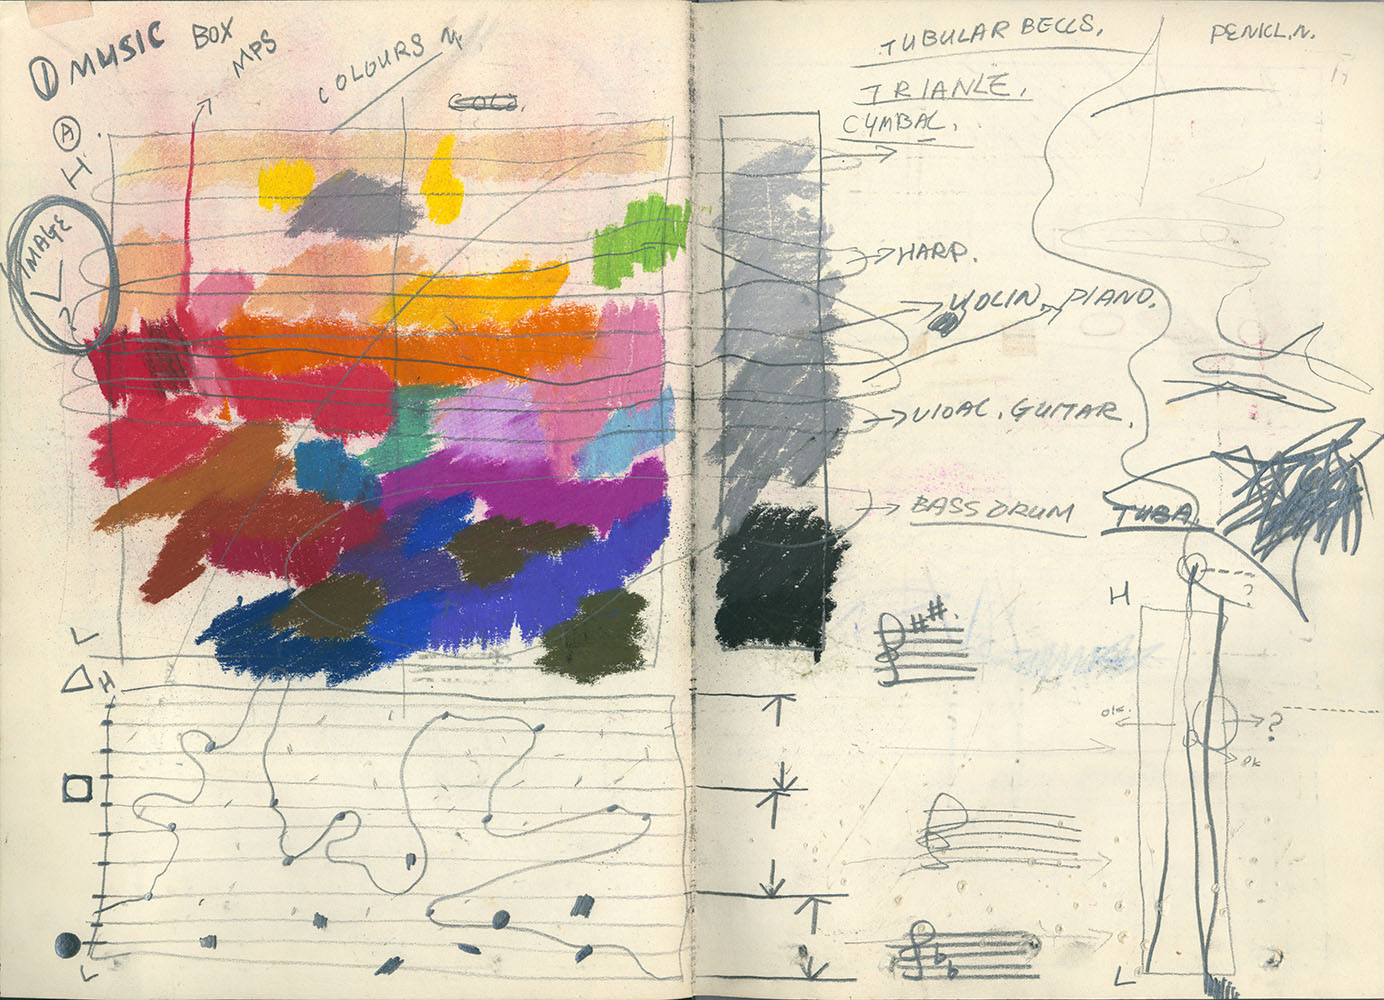 1 MUSIC BOX
MPS
COLOURS
A
H
IMAGE
L
?
L
H
L
TUBULAR BELLS.
TRIANLE.
CYMBAL.
HARP.
VIOLIN, PIANO.
GUITAR
BASS DRUM
TUBA
H
?
?
L